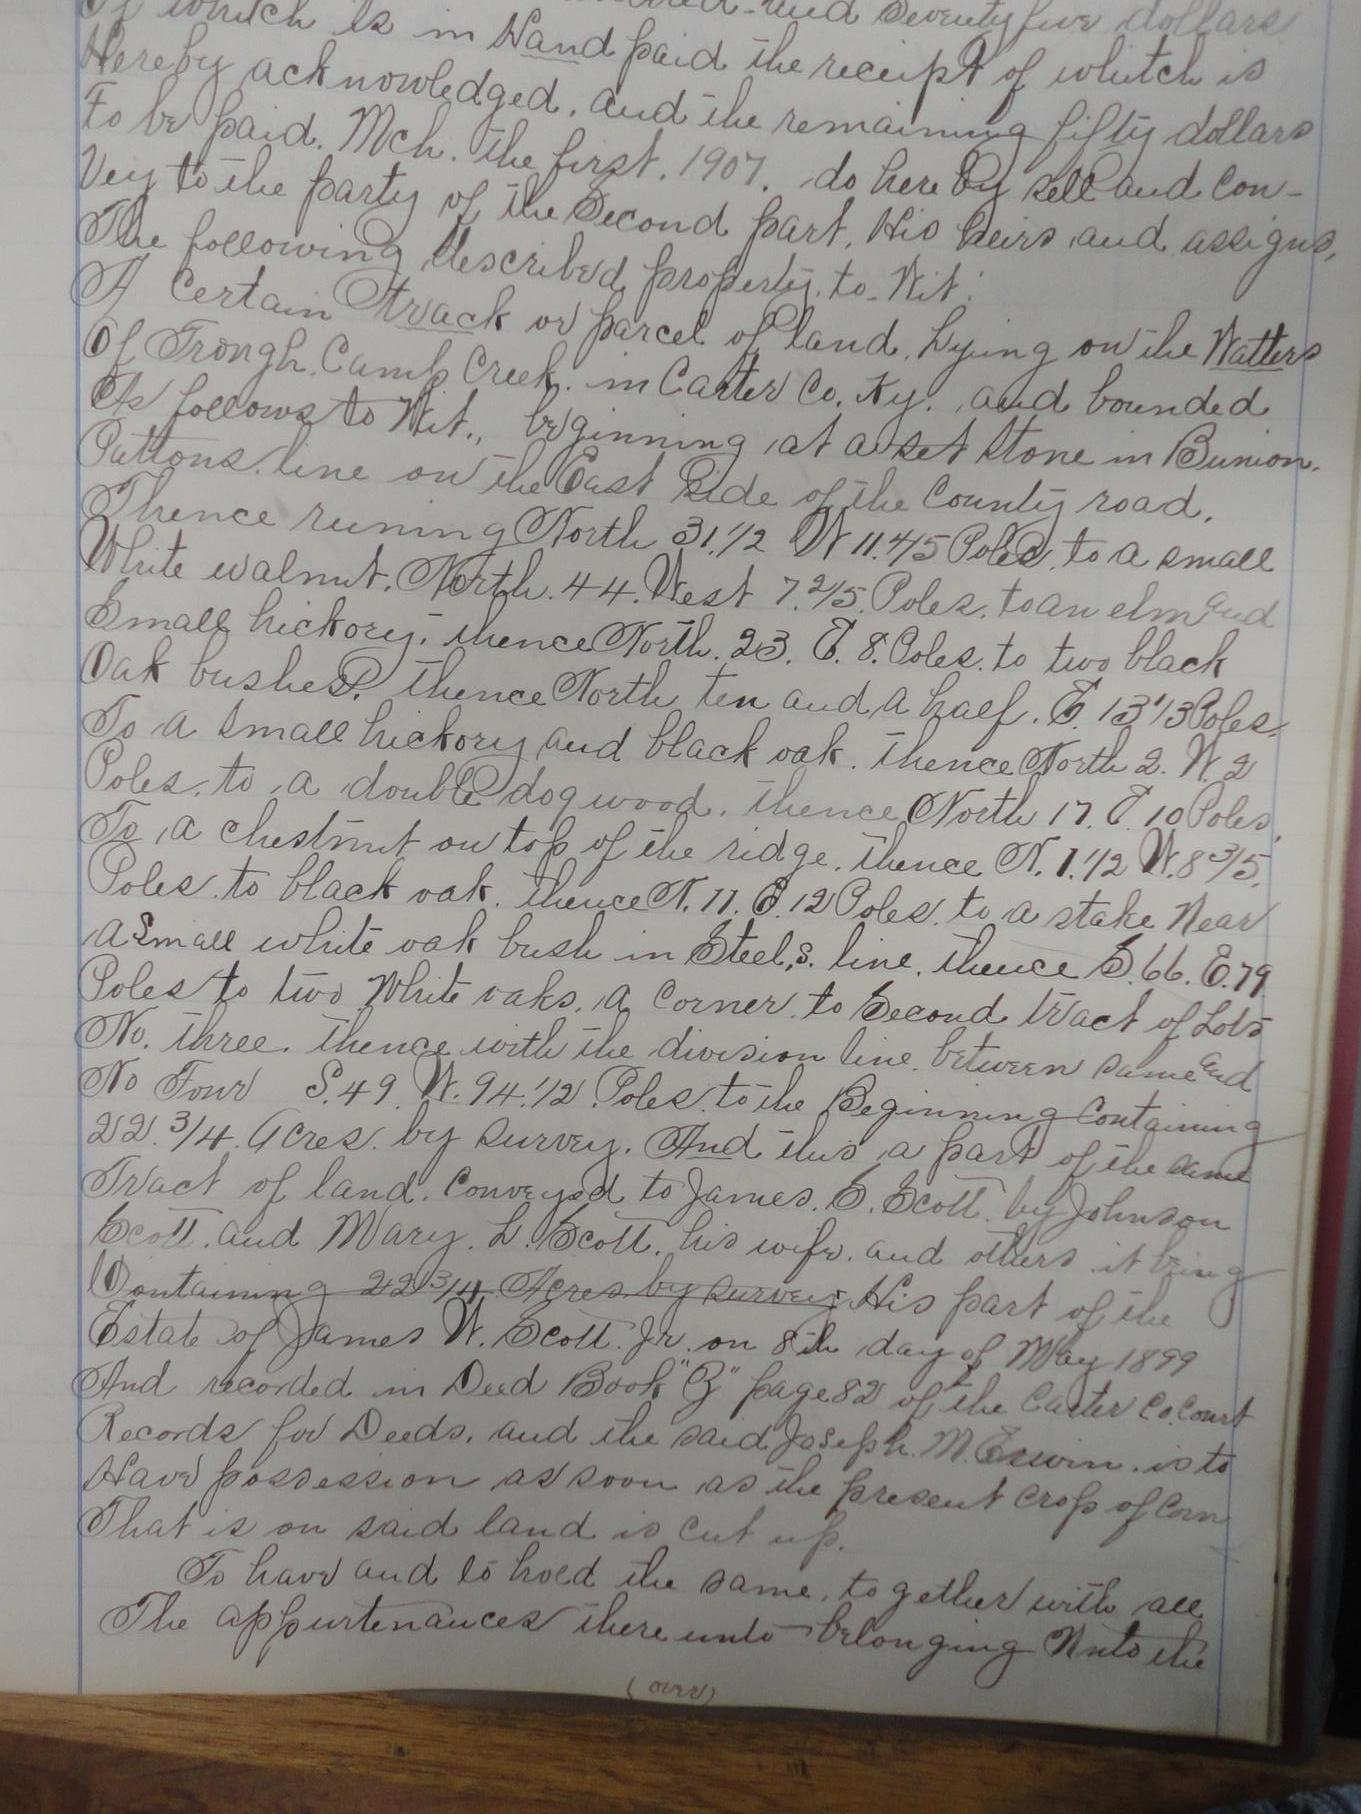 and Seventy five dollars
Of whitch is in Hand paid the receipt of whitch is
Hereby acknowledged, and the remaining fifty dollars
To be paid. Mch. the first, 1907. do here by sell and con-
Vey to the party of the Second part, His heirs and assigns,
The following described property, to-Wit:
A Certain Track or parcel of land, Lying on the Watters
Of Trough Camp Creek. in Carter Co, Ky. and bounded
As follows to Wit., beginning at a set stone in Bunion.
Pattons line on the East Side of the County road,
Thence runing North 31.1/2 W 11.4/5 Poles, to a small
White walnut, North. 44. West 7.2/5. Poles. to an elm and
Small hickory, thence North. 23. E. 8. Poles. to two black
Oak bushes, thence North ten and a half. E. 13 1/3 Poles,
To a small hickory and black oak. thence North 2. W. 2
Poles. to a double dogwood, thence North 17. E. 10 Poles,
To a chestnut on top of the ridge. thence N. 1.1/2 W. 8 3/5.
Poles to black oak. thence N. 11. E. 12 Poles. to a stake Near
a small white oak bush in Steel,s. line, thence S. 66. E. 79
Poles to two White oaks, a Corner to Second tract of Lots
No. three. thence with the division line between same and
No Four S. 49. W. 94.1/2 Poles. to the Beginning Containing
22.3/4. Acres. by survey. And this a part of the same
Tract of land. Conveyed to James. S. Scott. by Johnson
Scott. and Mary. L. Scott. his wife. and others. it being
Containing 22 3/4 Acres by survey. His part of the
Estate of James W. Scott. Jr. on 8th day of May 1899
And recorded in Deed Book "Z" page 82 of the Carter Co. Court
Records for Deeds. and the said Joseph. M. Erwin. is to
Have possession as soon as the present crop of Corn
That is on said land is cut up.
To have and to hold the same, together with all
The appurtenances there unto belonging Unto the
(over)